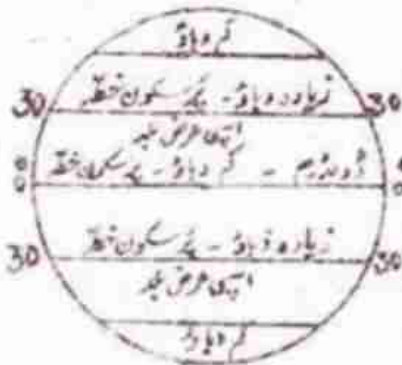 کم دباؤ
30 زیادہ دباؤ - پُرسکون خطّہ 30
اسپی عرض بلد
0° ڈولڈرم - کم دباؤ - پُرسکون خطّہ 0°
30 زیادہ دباؤ - پُرسکون خطّہ 30
اسپی عرض بلد
کم دباؤ